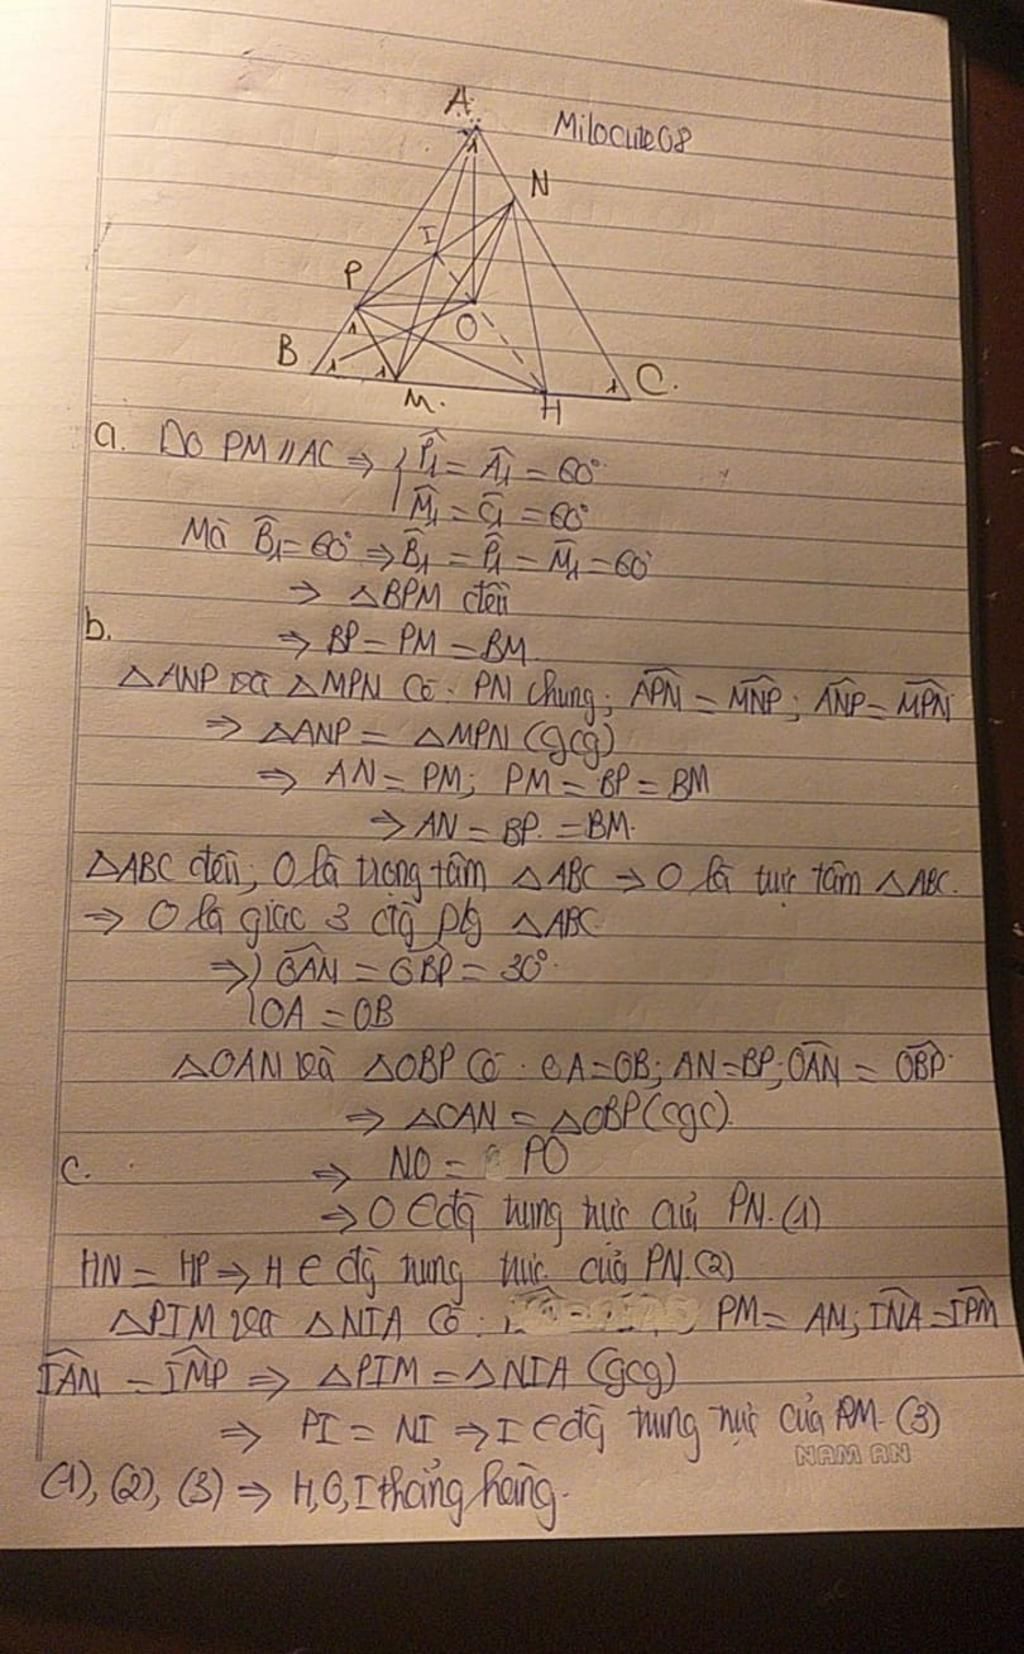 A
Milocute08
1
N
I
P
1
O
B
1
1
1
C.
M.
H
a. Do PM // AC ⇒ { P̂₁ = Â₁ = 60°
M̂₁ = Ĉ₁ = 60°
Mà B̂₁ = 60° ⇒ B̂₁ = P̂₁ = M̂₁ = 60°
⇒ △BPM đều
b.
⇒ BP = PM = BM
△ANP và △MPN có: PN chung; APN̂ = MNP̂; ANP̂ = MPN̂
⇒ △ANP = △MPN (gcg)
⇒ AN = PM; PM = BP = BM
⇒ AN = BP = BM.
△ABC đều, O là trọng tâm △ABC → O là trực tâm △ABC.
⇒ O là giao 3 đg pg △ABC
⇒ { OAN̂ = OBP̂ = 30°.
OA = OB
△OAN và △OBP có: OA = OB; AN = BP; OAN̂ = OBP̂
⇒ △OAN = △OBP (cgc).
c.
⇒ NO = PO
⇒ O ∈ đg trung trực của PN. (1)
HN = HP ⇒ H ∈ đg trung trực của PN. (2)
△PIM và △NIA có: PM = AN; INÂ = IPM̂
IAN̂ = IMP̂ ⇒ △PIM = △NIA (gcg)
⇒ PI = NI ⇒ I ∈ đg trung trực của PM. (3)
NAM AN
(1), (2), (3) ⇒ H, O, I thẳng hàng.